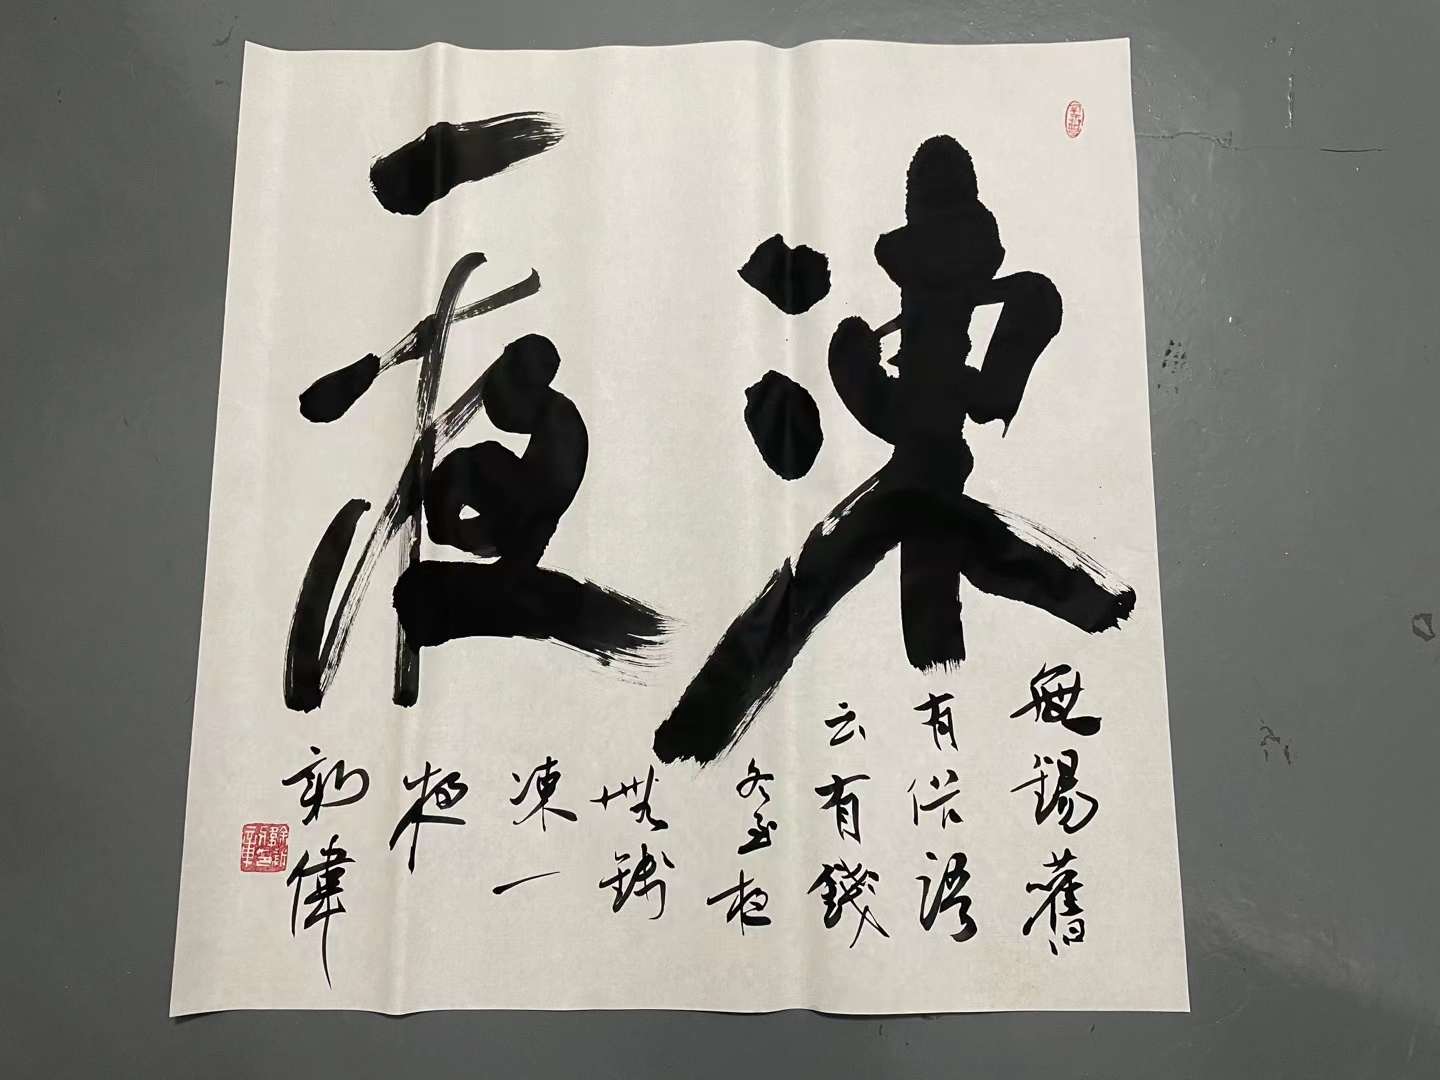 凍
一夜
無錫舊
有俗語
云有錢
冬至夜
無錢
凍一
夜
新偉